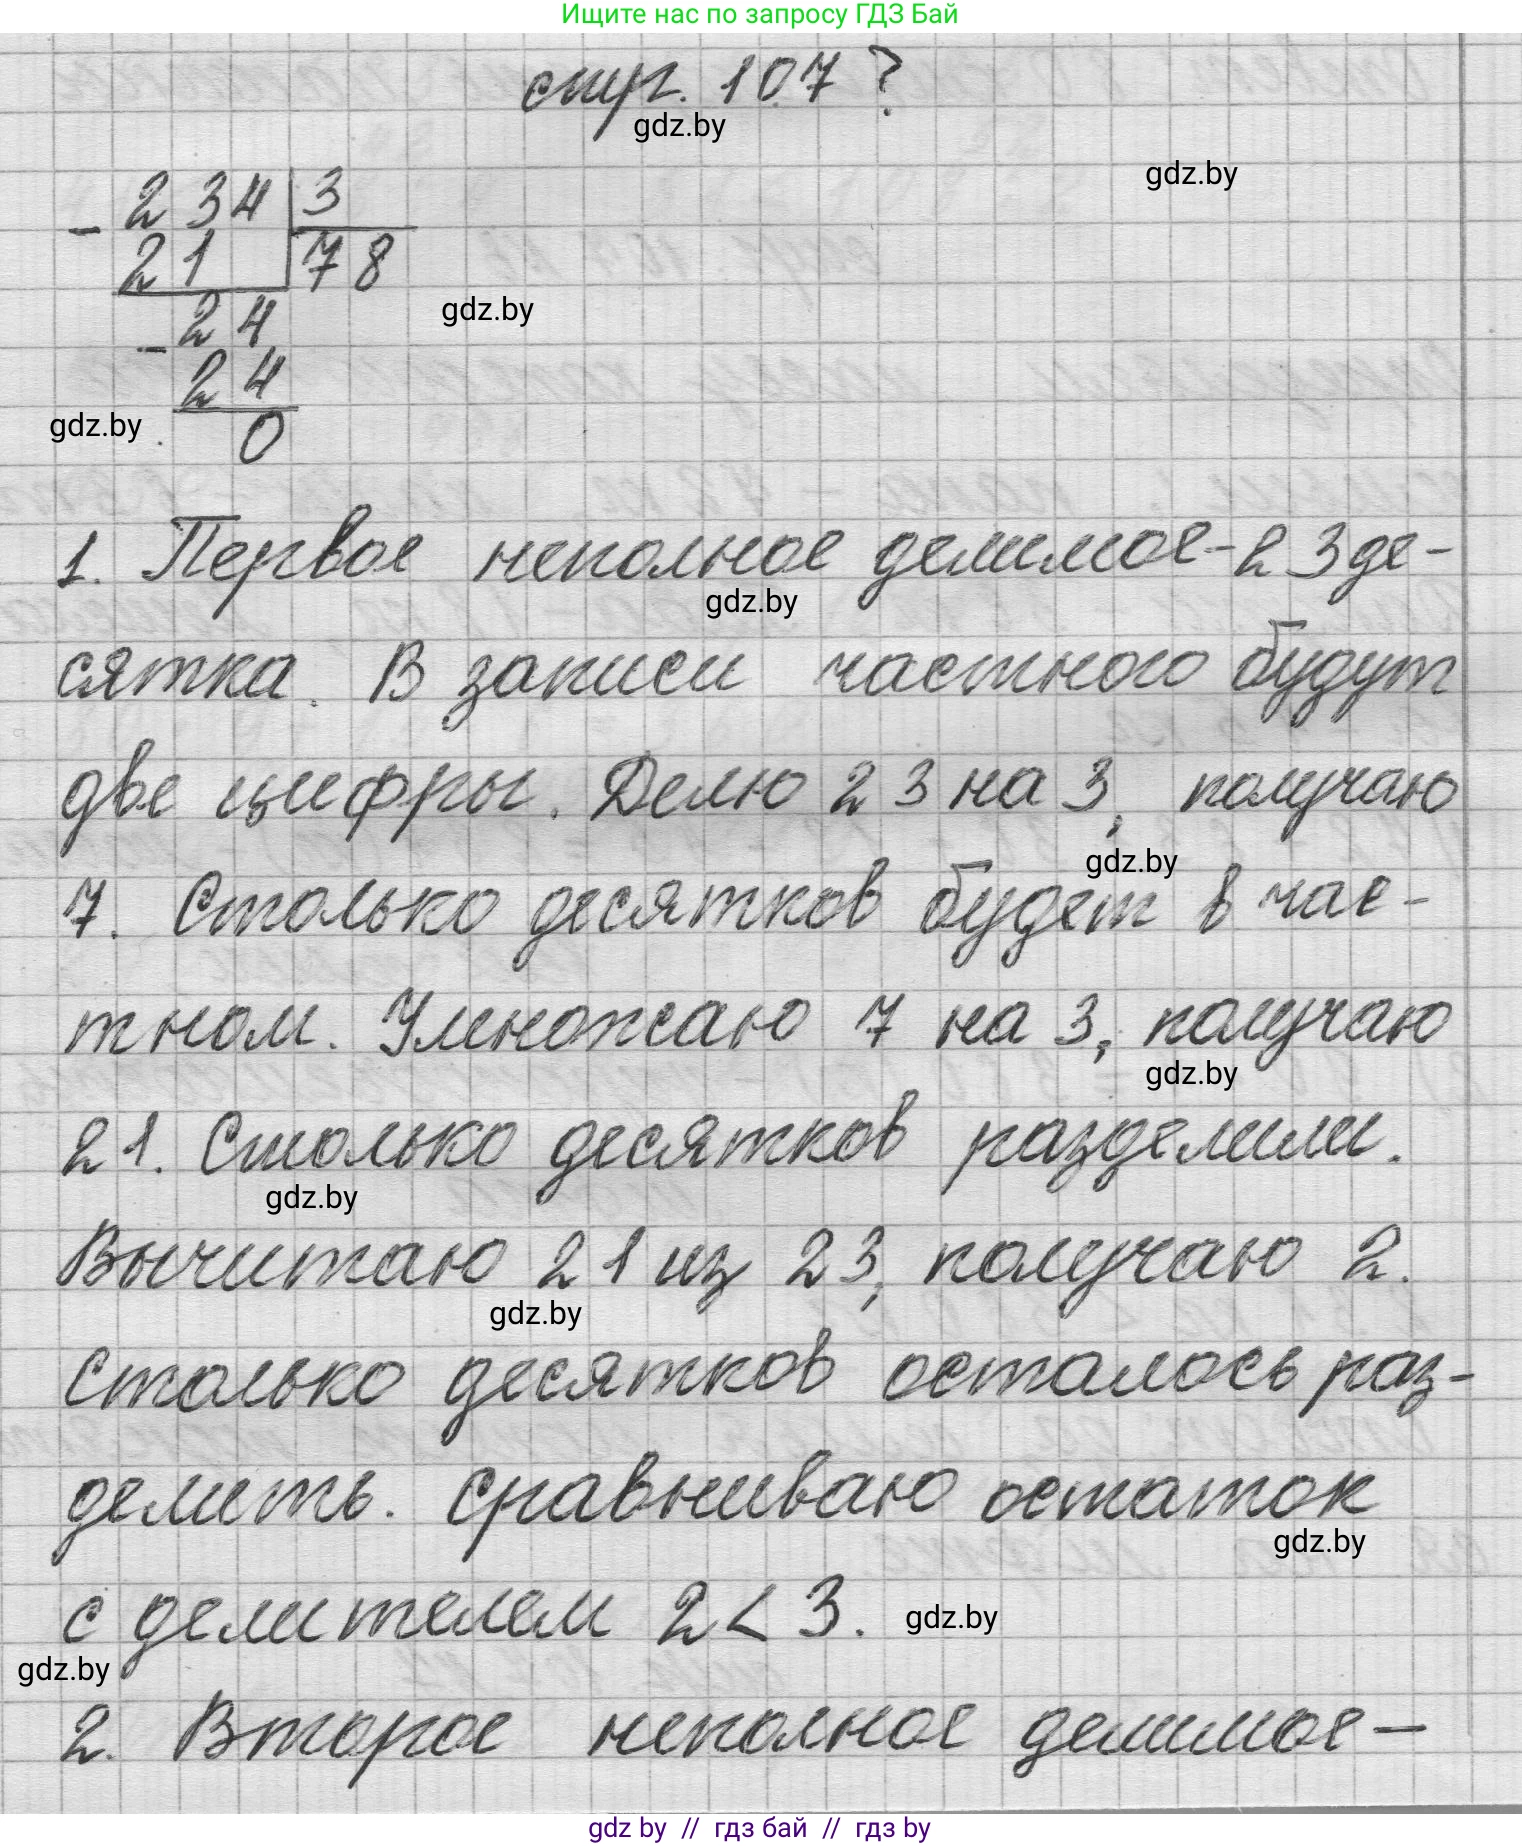 Ищите нас по запросу ГДЗ Бай
стр. 107 ?
gdz.by
gdz.by
- 234 | 3
21 | 78
gdz.by
- 24
24
gdz.by
0
1. Первое неполное делимое - 23 де-
gdz.by
сятка. В записи частного будут
две цифры. Делю 23 на 3, получаю
gdz.by
7. Столько десятков будет в час-
тном. Умножаю 7 на 3, получаю
gdz.by
21. Столько десятков разделили.
gdz.by
Вычитаю 21 из 23, получаю 2.
gdz.by
Столько десятков осталось раз-
делить. Сравниваю остаток
gdz.by
с делителем 2 < 3.
gdz.by
gdz.by
2. Второе неполное делимое -
gdz by // гдз бай // гдз by